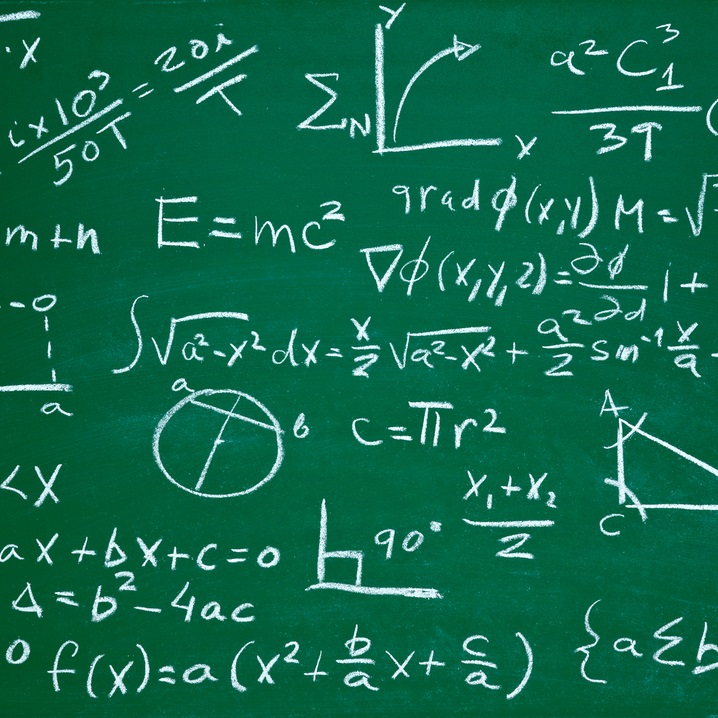 · x
i x 10³ / 50T = 20i / T
Σ N
Y
X
a² C₁³ / 3T
m + n
E = mc²
grad ϕ (x,y) M = √
∇ϕ (x,y,z) = ∂ϕ / ∂d 1 +
- 0
a
∫ √a² - x² dx = x/2 √a² - x² + a²/2 sin⁻¹ x/a -
a
b
c = πr²
A
C
< X
x₁ + x₂ / 2
ax + bx + c = 0
90°
Δ = b² - 4ac
0 f(x) = a (x² + b/a x + c/a)
{a ≤ b